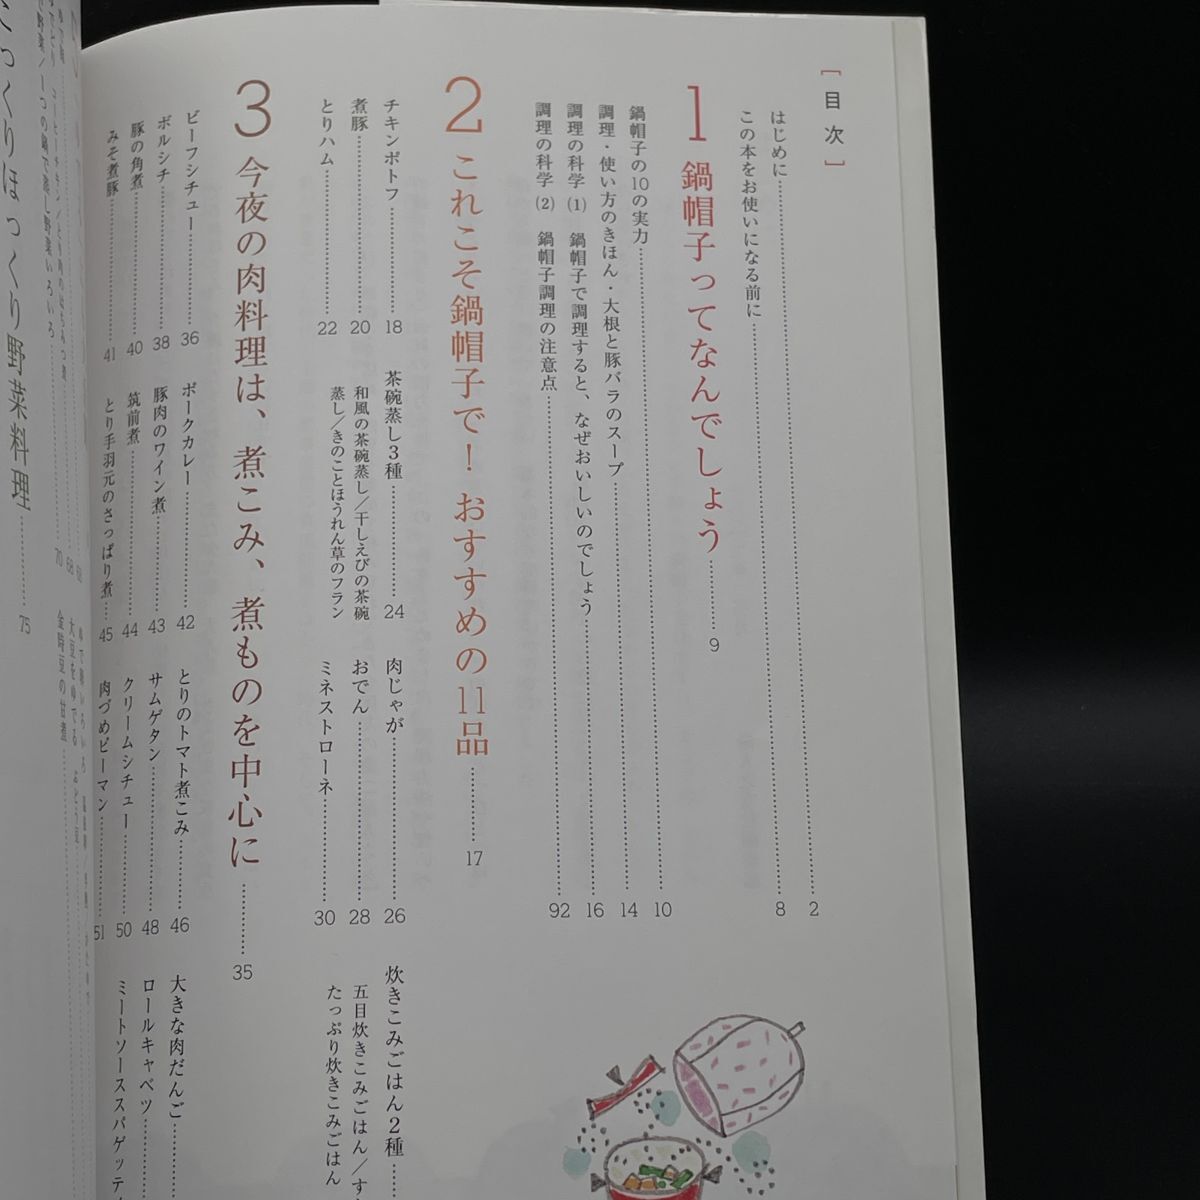 [目次]
はじめに……2
この本をお使いになる前に……8
1 鍋帽子ってなんでしょう……9
鍋帽子の10の実力……10
調理・使い方のきほん・大根と豚バラのスープ……14
調理の科学(1) 鍋帽子で調理すると、なぜおいしいのでしょう……16
調理の科学(2) 鍋帽子調理の注意点……92
2 これこそ鍋帽子で！おすすめの11品……17
チキンポトフ……18
煮豚……20
とりハム……22
茶碗蒸し3種……24
和風の茶碗蒸し／干しえびの茶碗
蒸し／きのことほうれん草のフラン
肉じゃが……26
おでん……28
ミネストローネ……30
炊きこみごはん2種……
五目炊きこみごはん／す
たっぷり炊きこみごはん
3 今夜の肉料理は、煮こみ、煮ものを中心に……35
ビーフシチュー……36
ボルシチ……38
豚の角煮……40
みそ煮豚……41
ポークカレー……42
豚肉のワイン煮……43
筑前煮……44
とり手羽元のさっぱり煮……45
とりのトマト煮こみ……46
サムゲタン……48
クリームシチュー……50
肉づめピーマン……51
大きな肉だんご……
ロールキャベツ……
ミートソーススパゲッティ
1つの鍋で蒸し野菜いろいろ……70
大豆をゆでる ぶどう豆……
金時豆の甘煮……
こっくりほっくり野菜料理……75